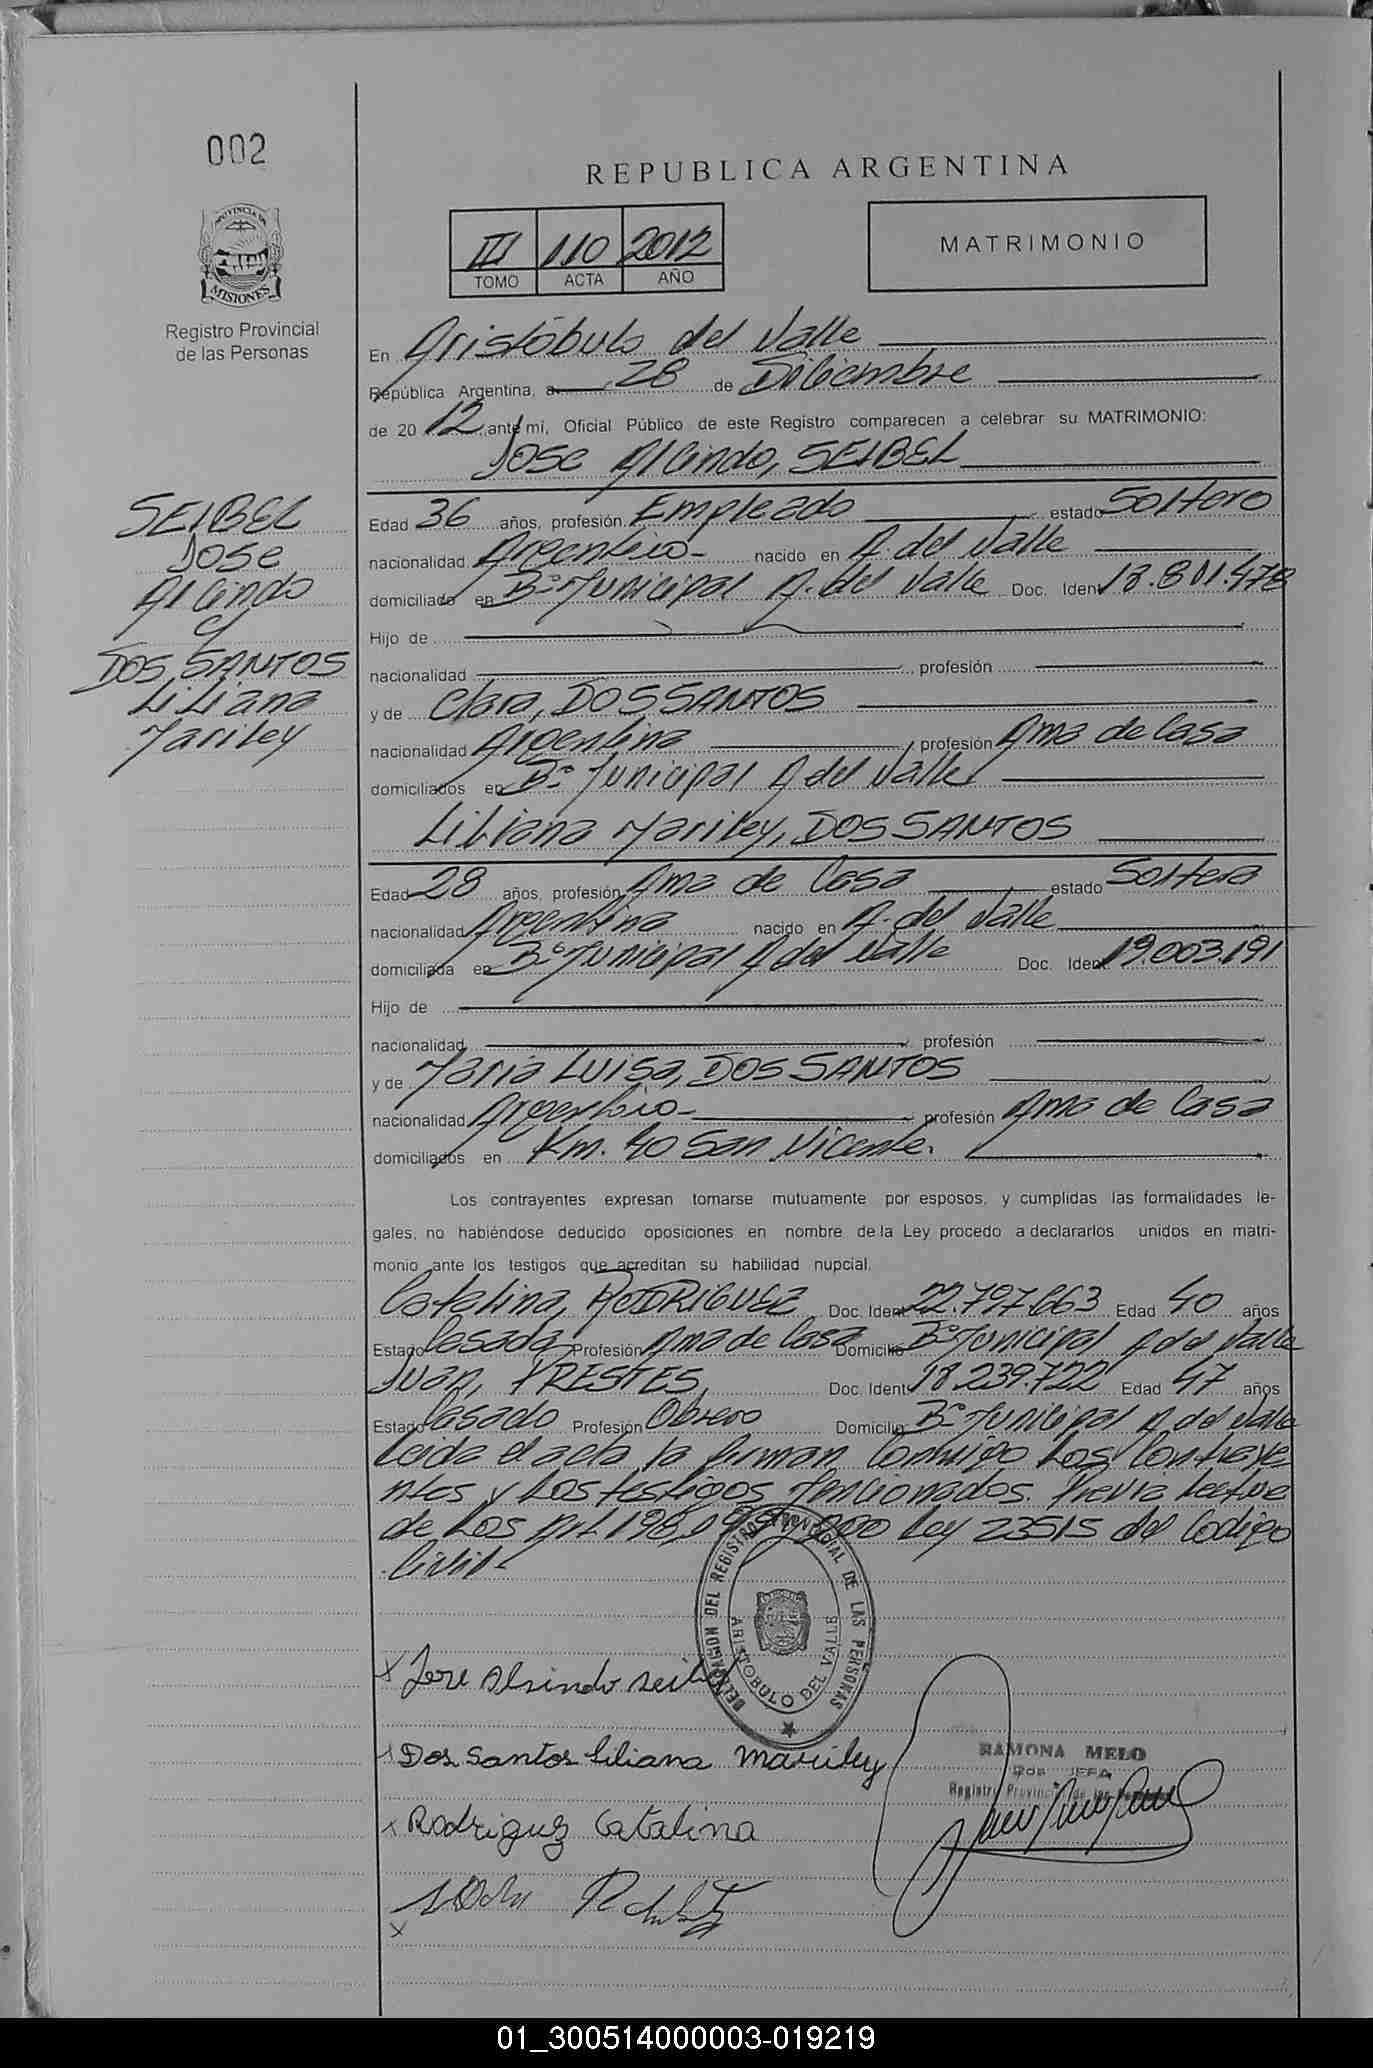 002
REPUBLICA ARGENTINA
III 110 2012
TOMO ACTA AÑO
MATRIMONIO
PROVINCIA DE
MISIONES
Registro Provincial
de las Personas
En Aristóbulo del Valle
República Argentina, a 28 de Diciembre
de 2012 ante mi, Oficial Público de este Registro comparecen a celebrar su MATRIMONIO:
Jose Alcindo, SEIBEL
SEIBEL
Jose
Alcindo
c/
DOS SANTOS
Liliana
Mariley
Edad 36 años, profesión Empleado estado Soltero
nacionalidad Argentino nacido en A. del Valle
domiciliado en Bº Municipal A. del Valle Doc. Ident 18.801.478
Hijo de
nacionalidad profesión
y de Clara, DOS SANTOS
nacionalidad Argentina profesión Ama de Casa
domiciliados en Bº Municipal A del Valle
Liliana Mariley, DOS SANTOS
Edad 28 años, profesión Ama de Casa estado Soltera
nacionalidad Argentina nacido en A. del Valle
domiciliada en Bº Municipal A del Valle Doc. Ident. 19.003.191
Hijo de
nacionalidad profesión
y de Maria Luisa, DOS SANTOS
nacionalidad Argentino profesión Ama de Casa
domiciliados en Km. 40 San Vicente.
Los contrayentes expresan tomarse mutuamente por esposos, y cumplidas las formalidades le-
gales, no habiéndose deducido oposiciones en nombre de la Ley procedo a declararlos unidos en matri-
monio ante los testigos que acreditan su habilidad nupcial.
Catalina, RODRIGUEZ Doc. Ident 22.797.663 Edad 40 años
Estado Casada Profesión Ama de Casa Domicilio Bº Municipal A del Valle
Juan, PRESTES, Doc. Ident 18.239.722 Edad 47 años
Estado Casado Profesión Obrero Domicilio Bº Municipal A del Valle
Leida el acta la firman Conmigo Los Contraye
ntes y Los testigos Mencionados. Previa Lectura
de Los Art 198,199 y 200 Ley 23515 del Codigo
Civil.-
DELEGACION DEL REGISTRO PROVINCIAL DE LAS PERSONAS
ARISTOBULO DEL VALLE
x Jose Alsindo
x Dos Santos Liliana Mariley
RAMONA MELO
JEFA
Registro Provincial de las Personas
x Rodriguez Catalina
x
01_300514000003-019219